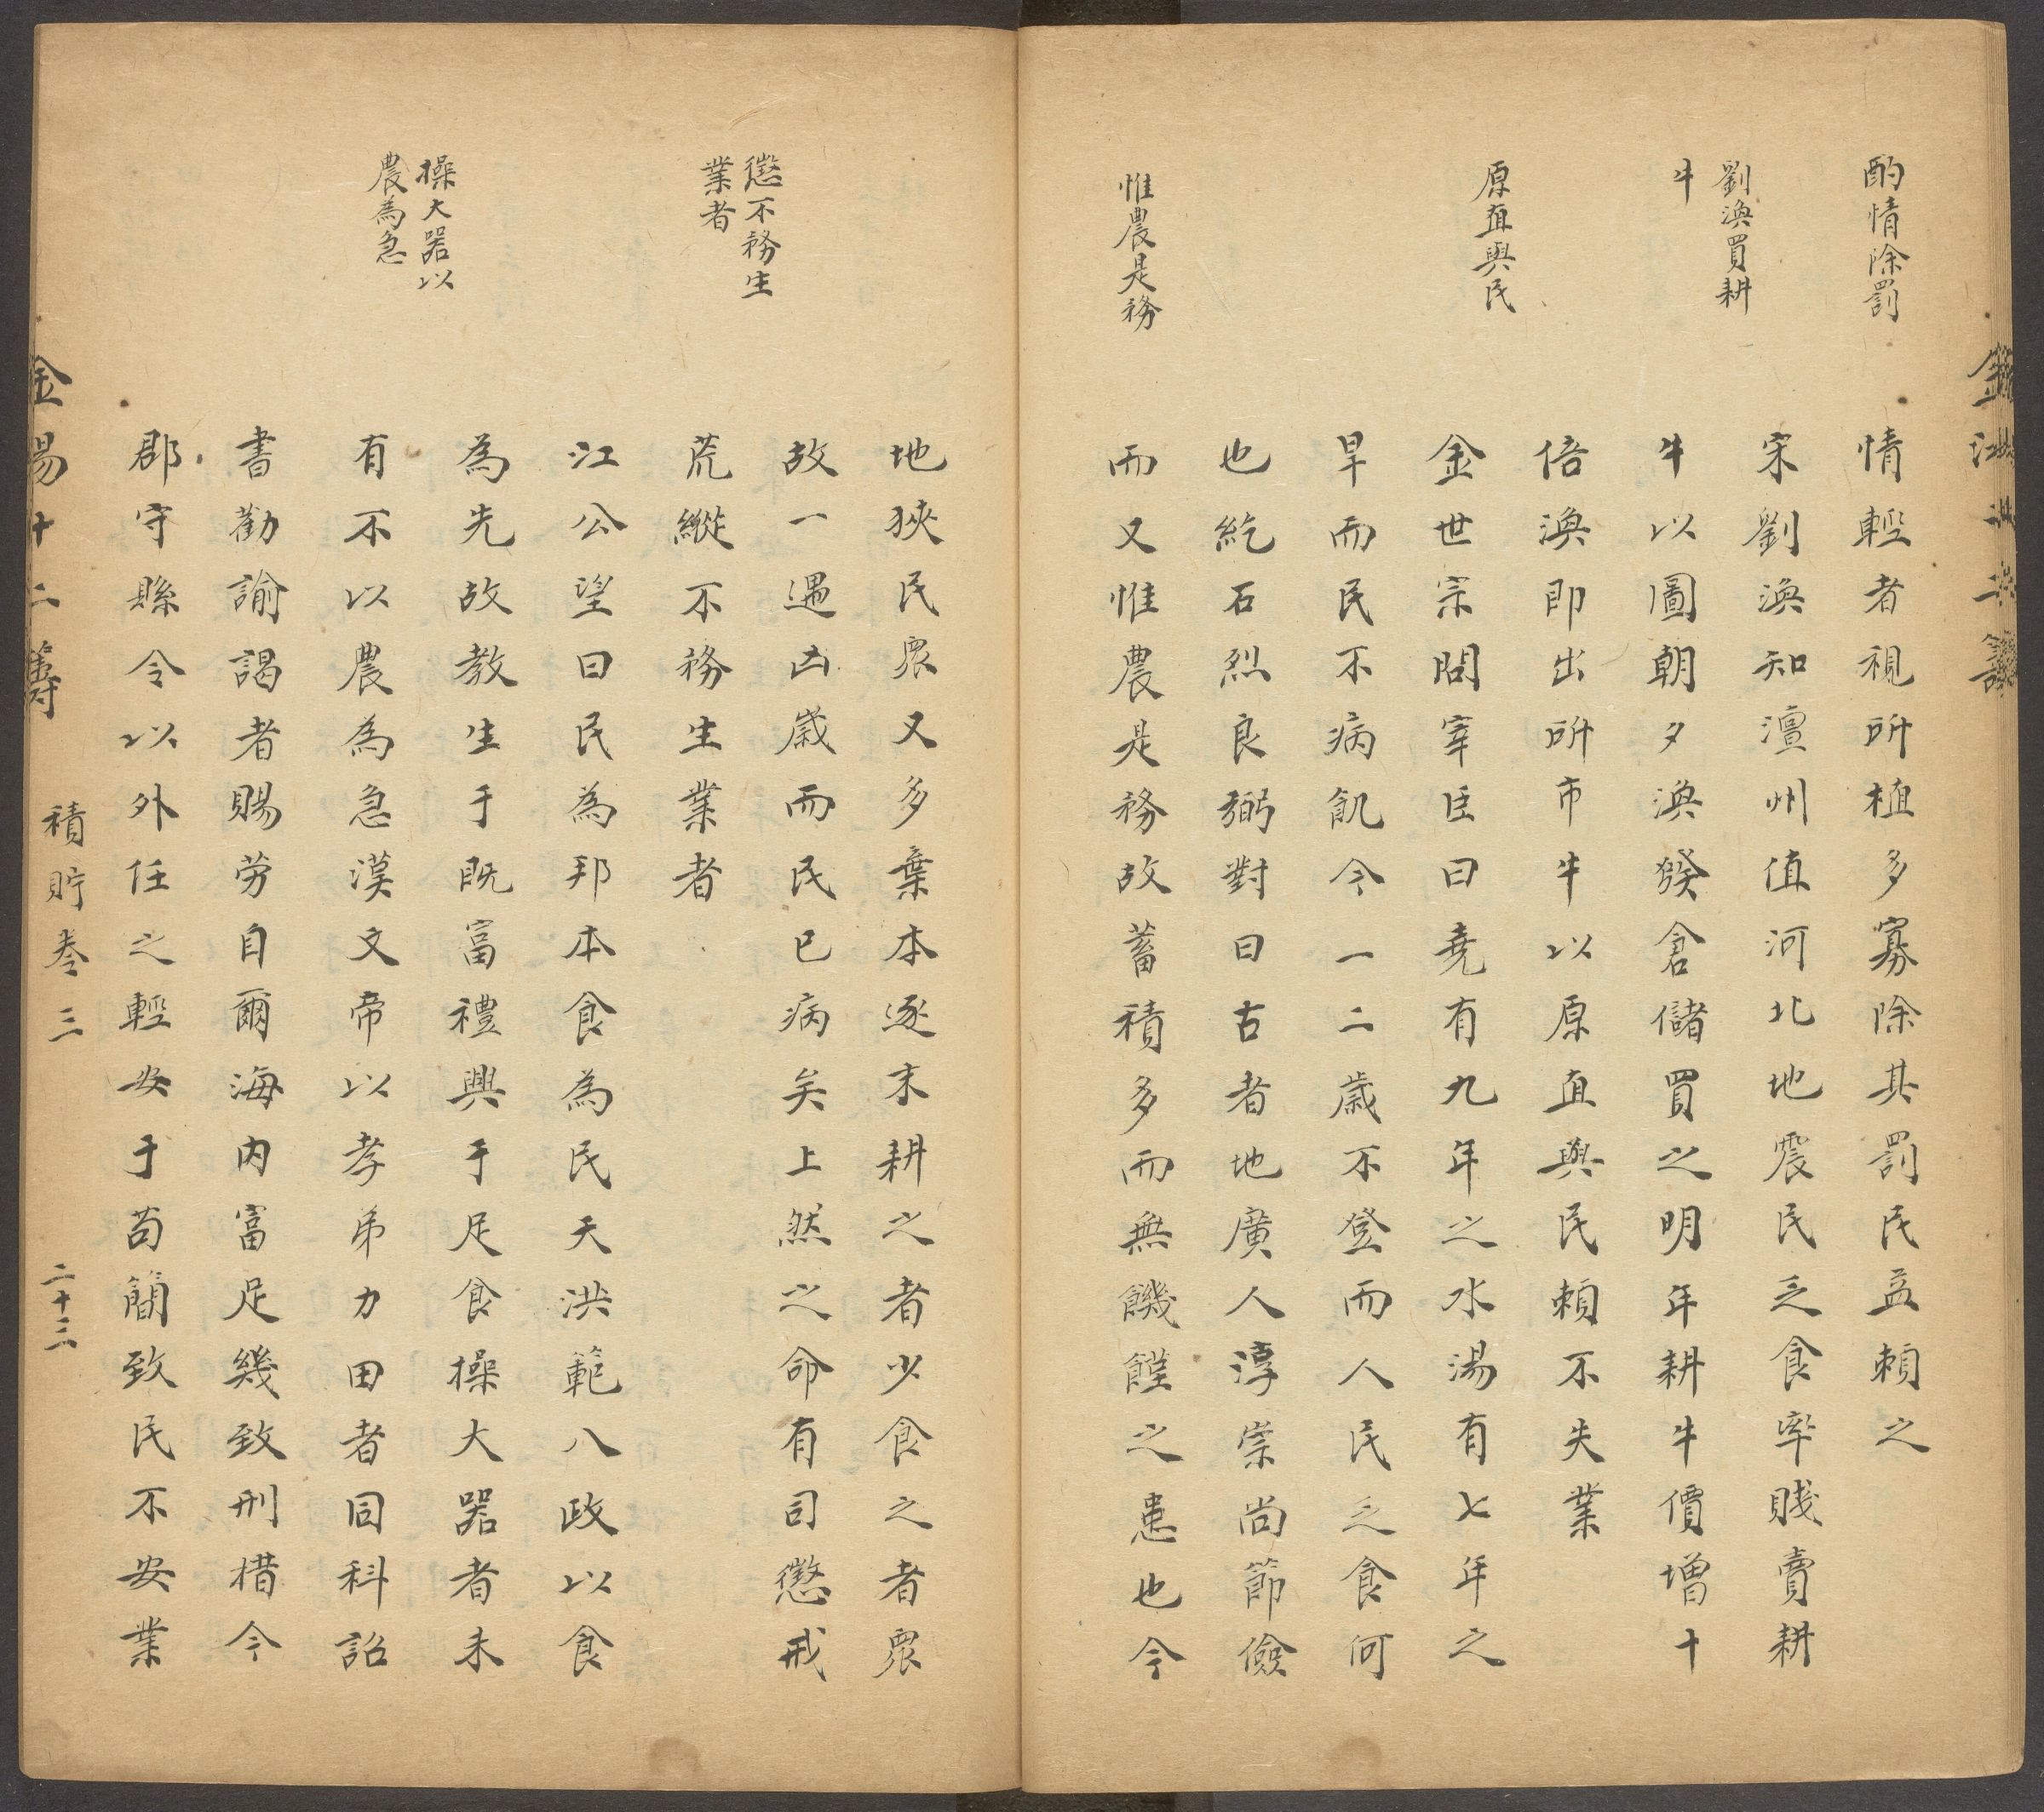 酌情除罰
劉渙買耕
牛
原直與民
惟農是務
情輕者視所植多寡除其罰民益賴之
宋劉渙知澶州值河北地震民乏食率賤賣耕
牛以圖朝夕渙發倉儲買之明年耕牛價增十
倍渙即出所市牛以原直與民賴不失業
金世宗問宰臣曰堯有九年之水湯有七年之
旱而民不病飢今一二歲不登而人民乏食何
也紇石烈良弼對曰古者地廣人淳崇尚節儉
而又惟農是務故蓄積多而無饑饉之患也今
懲不務生
業者
操大器以
農為急
地狹民眾又多棄本逐末耕之者少食之者眾
故一遇凶歲而民已病矣上然之命有司懲戒
荒縱不務生業者
江公望曰民為邦本食為民天洪範八政以食
為先故教生于既富禮興于足食操大器者未
有不以農為急漢文帝以孝弟力田者同科詔
書勸諭謁者賜勞自爾海內富足幾致刑措今
郡守縣令以外任之輕安于苟簡致民不安業
金湯十二籌
積貯卷三
二十三